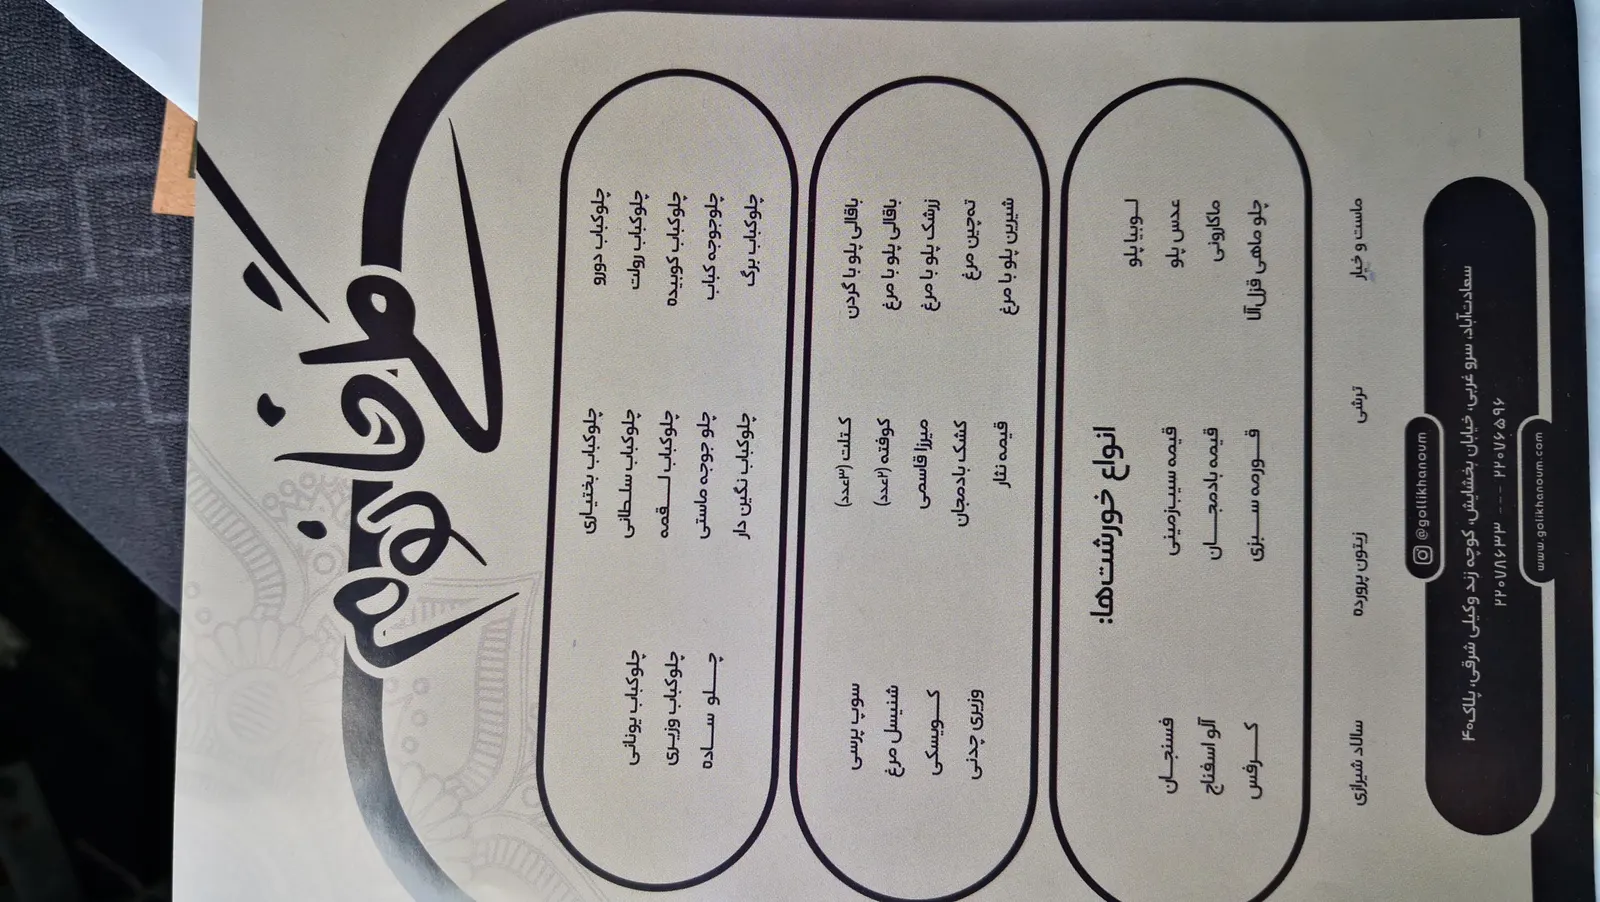 گلی خانوم
چلوکباب دورو
چلوکباب رولت
چلوکباب کوبیده
چلوجوجه کباب
چلوکباب برگ
چلوکباب بختیاری
چلوکباب سلطانی
چلوکباب لـقمه
چلو جوجه ماستی
چلوکباب نگین دار
چلوکباب یونانی
چلوکباب وزیری
چـلو سـاده
باقالی پلو با گردن
باقالی پلو با مرغ
زرشک پلو با مرغ
ته‌چین مرغ
شیرین پلو با مرغ
کـتلت (۳عدد)
کوفته (۲عدد)
میرزا قاسمی
کشک بادمجان
قیمه نثار
سوپ پرسی
شنیسل مرغ
کـوبسکی
وزیری چدنی
لـوبیا پلو
عدس پلو
ماکارونی
چلو ماهی قزل‌آلا
انواع خورشت‌ها:
قیمه سیب‌زمینی
قیمه بادمجـان
قـورمه سـبزی
فسنجـان
آلو اسفناج
کـرفس
ماست و خیار
ترشی
زیتون پرورده
سالاد شیرازی
@golikhanoum
سعادت‌آباد، سرو غربی، خیابان بخشایش، کوچه زند وکیلی شرقی، پلاک۴۰
۲۲۰۷۸۶۳۳ --- ۲۲۰۷۶۵۹۶
www.golikhanoum.com